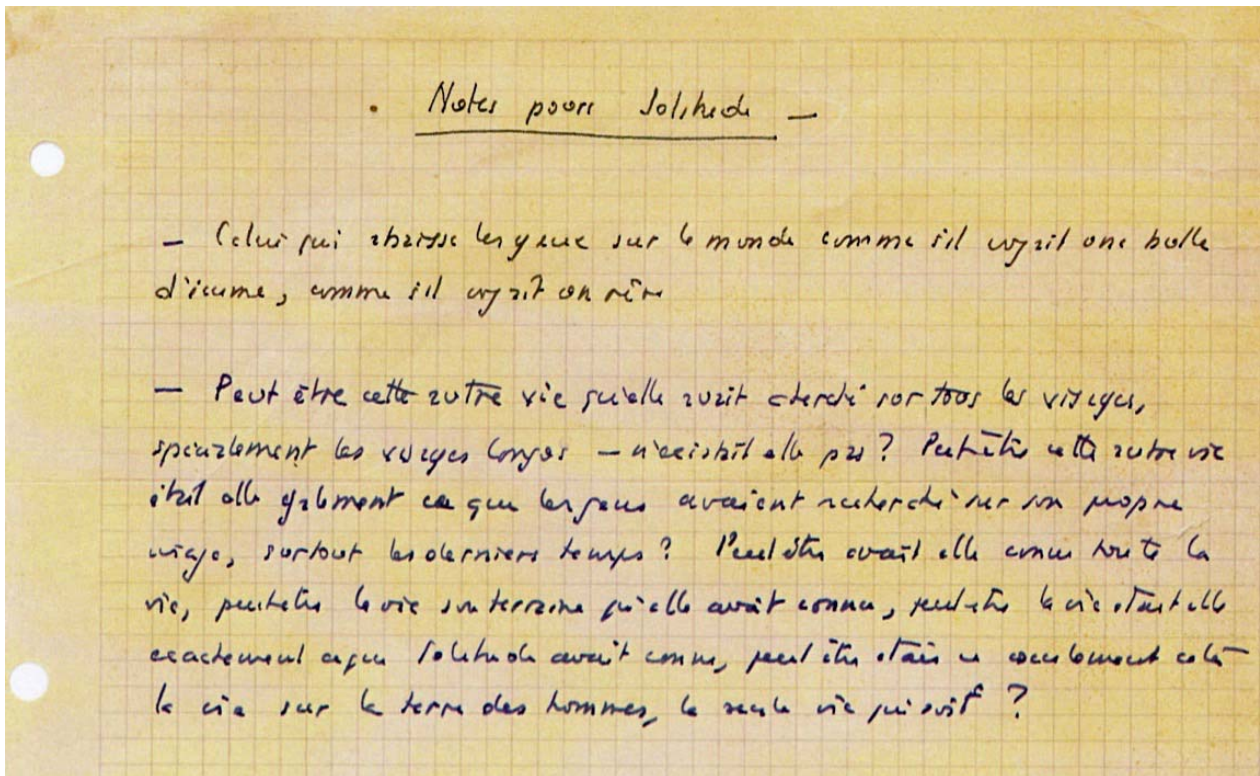 . Notes pour Solitude —
— Celui qui abaisse les yeux sur le monde comme s'il voyait une bulle
d'écume, comme s'il voyait un rêve
— Peut être cette autre vie qu'elle avait cherché sur tous les visages,
spécialement les visages longs — n'existait elle pas ? Peut être cette autre vie
était elle également ce que les gens avaient recherché sur son propre
visage, surtout les derniers temps ? Peut être avait elle connu toute la
vie, peut être la vie souterraine qu'elle avait connu, peut être la vie était elle
exactement ce que Solitude avait connu, peut être était ce seulement cela
la vie sur la terre des hommes, la seule vie qui soit ?